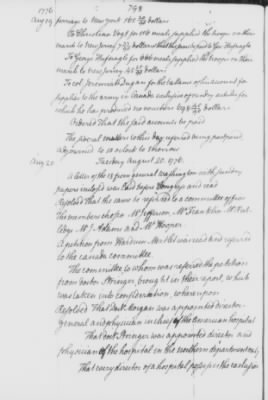 1776. 798
Aug 19 ferriage to New York 162 dollars
To Christina Vogt for 166 meals supplied the troops on their
march to New Jersey dollars that the same be paid to Geo Hufnagle
To George Hufnagle for 666 meals supplied the troops on their
march to New Jersey dollars
To col Jeremiah Dugan for the ballance of his account for
supplies to the army in Canada exclusive of sundry articles for
which he has produced no vouchers dollars
Ordered That the said accounts be paid
The several matters to this day referred being postponed
adjourned to 10 o'clock to morrow
Aug 20. Tuesday August 20. 1776.
A letter of the 18 from general Washington with sundry
papers inclosed was laid before Congress and read
Resolved That the same be referred to a committee of five
The members chosen Mr Jefferson, Mr Franklin Mr Rut-
ledge Mr J. Adams and Mr Hooper
A petition from was read and referred
to the canada committee.
The committee to whom was referred the petition
from doctor Stringer, brought in their report, which
was taken into consideration, whereupon
Resolved That Doctr. Morgan was appointed director
general and physician in chief of the American hospital
That doctr. Stringer was appointed director and
physician of the hospital in the northern department only
That every director of a hospital possesses the exclusive